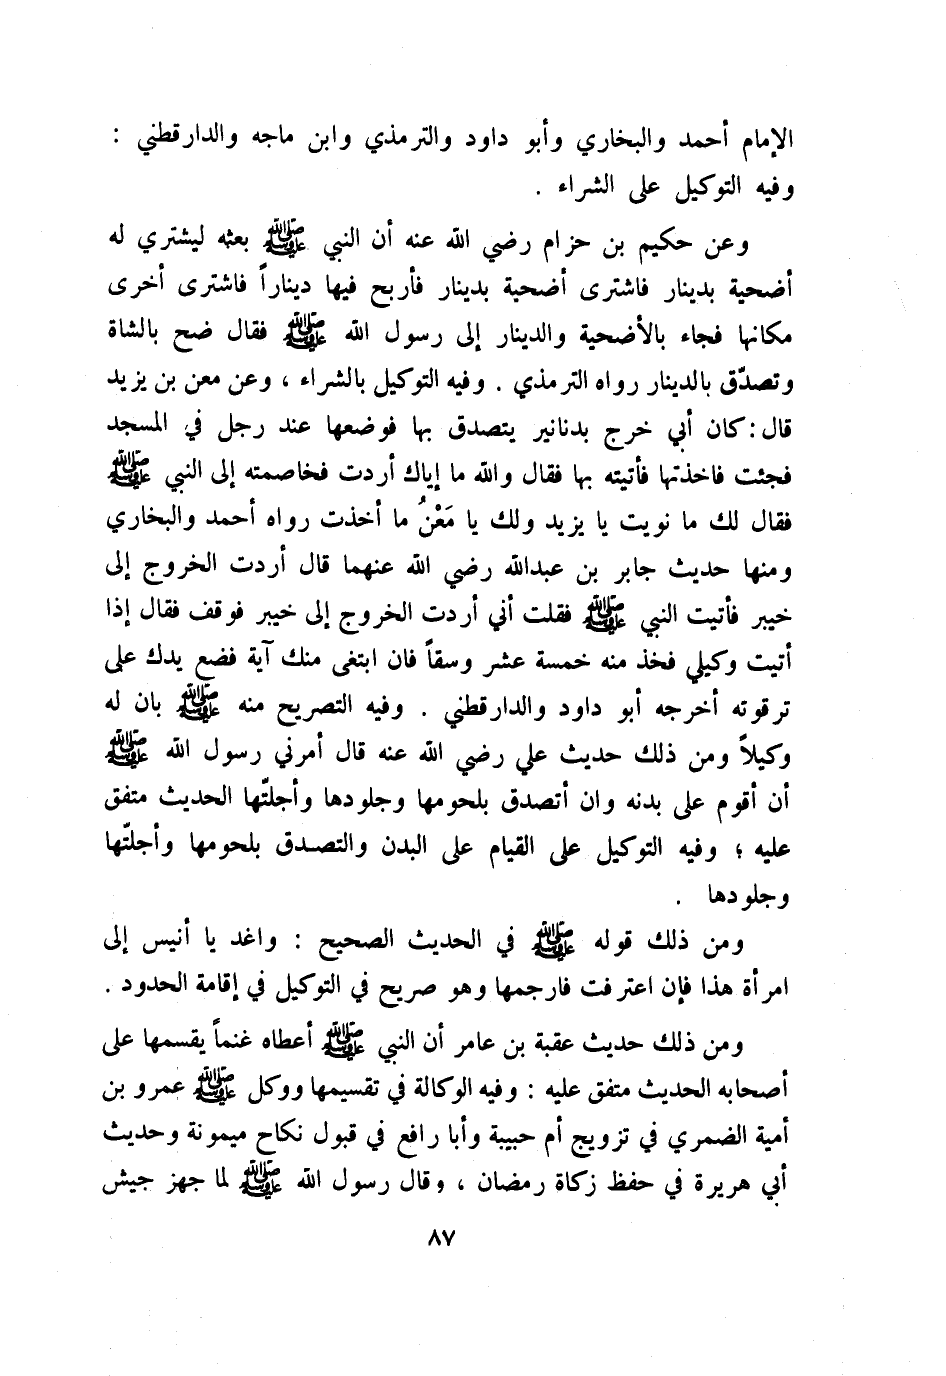 الإمام أحمد والبخاري وأبو داود والترمذي وابن ماجه والدارقطني :
وفيه التوكيل على الشراء .
وعن حكيم بن حزام رضي الله عنه أن النبي ﷺ بعثه ليشتري له
أضحية بدينار فاشترى أضحية بدينار فأربح فيها ديناراً فاشترى أخرى
مكانها فجاء بالأضحية والدينار إلى رسول الله ﷺ فقال ضح بالشاة
وتصدّق بالدينار رواه الترمذي . وفيه التوكيل بالشراء ، وعن معن بن يزيد
قال : كان أبي خرج بدنانير يتصدق بها فوضعها عند رجل في المسجد
فجئت فاخذتها فأتيته بها فقال والله ما إياك أردت فخاصمته إلى النبي ﷺ
فقال لك ما نويت يا يزيد ولك يا مَعْنُ ما أخذت رواه أحمد والبخاري
ومنها حديث جابر بن عبدالله رضي الله عنهما قال أردت الخروج إلى
خيبر فأتيت النبي ﷺ فقلت أني أردت الخروج إلى خيبر فوقف فقال إذا
أتيت وكيلي فخذ منه خمسة عشر وسقاً فان ابتغى منك آية فضع يدك على
ترقوته أخرجه أبو داود والدارقطني . وفيه التصريح منه ﷺ بان له
وكيلاً ومن ذلك حديث علي رضي الله عنه قال أمرني رسول الله ﷺ
أن أقوم على بدنه وان أتصدق بلحومها وجلودها وأجلتّها الحديث متفق
عليه ؛ وفيه التوكيل على القيام على البدن والتصدق بلحومها وأجلتّها
وجلودها .
ومن ذلك قوله ﷺ في الحديث الصحيح : واغد يا أنيس إلى
امرأة هذا فإن اعترفت فارجمها وهو صريح في التوكيل في إقامة الحدود .
ومن ذلك حديث عقبة بن عامر أن النبي ﷺ أعطاه غنماً يقسمها على
أصحابه الحديث متفق عليه : وفيه الوكالة في تقسيمها ووكل ﷺ عمرو بن
أمية الضمري في تزويج أم حبيبة وأبا رافع في قبول نكاح ميمونة وحديث
أبي هريرة في حفظ زكاة رمضان ، وقال رسول الله ﷺ لما جهز جيش
٨٧